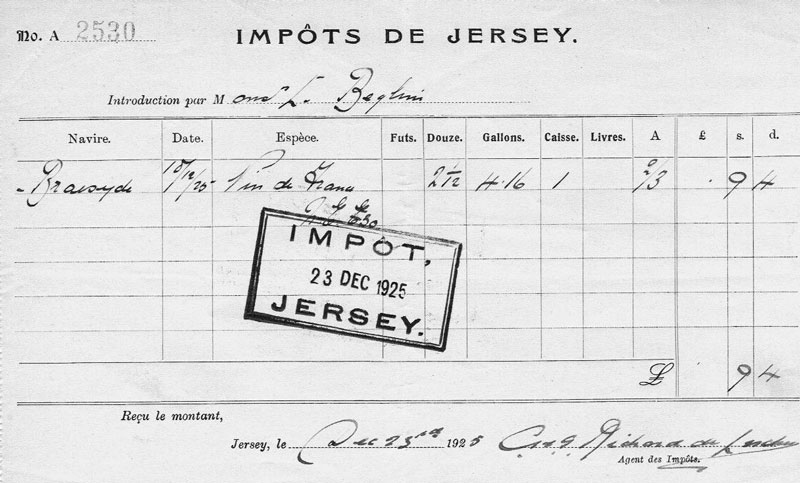 No. A 2530
IMPÔTS DE JERSEY.
Introduction par M ons^r L.
Navire. Date. Espèce. Futs. Douze. Gallons. Caisse. Livres. A £ s. d.
Braesyde 18/12/25 Vin de France 2 1/12 4·16 1 2/3 9 4
IMPÔT,
23 DEC 1925
JERSEY.
£ 9 4
Reçu le montant,
Jersey, le Dec 23rd 1925 Richard du
Agent des Impôts.